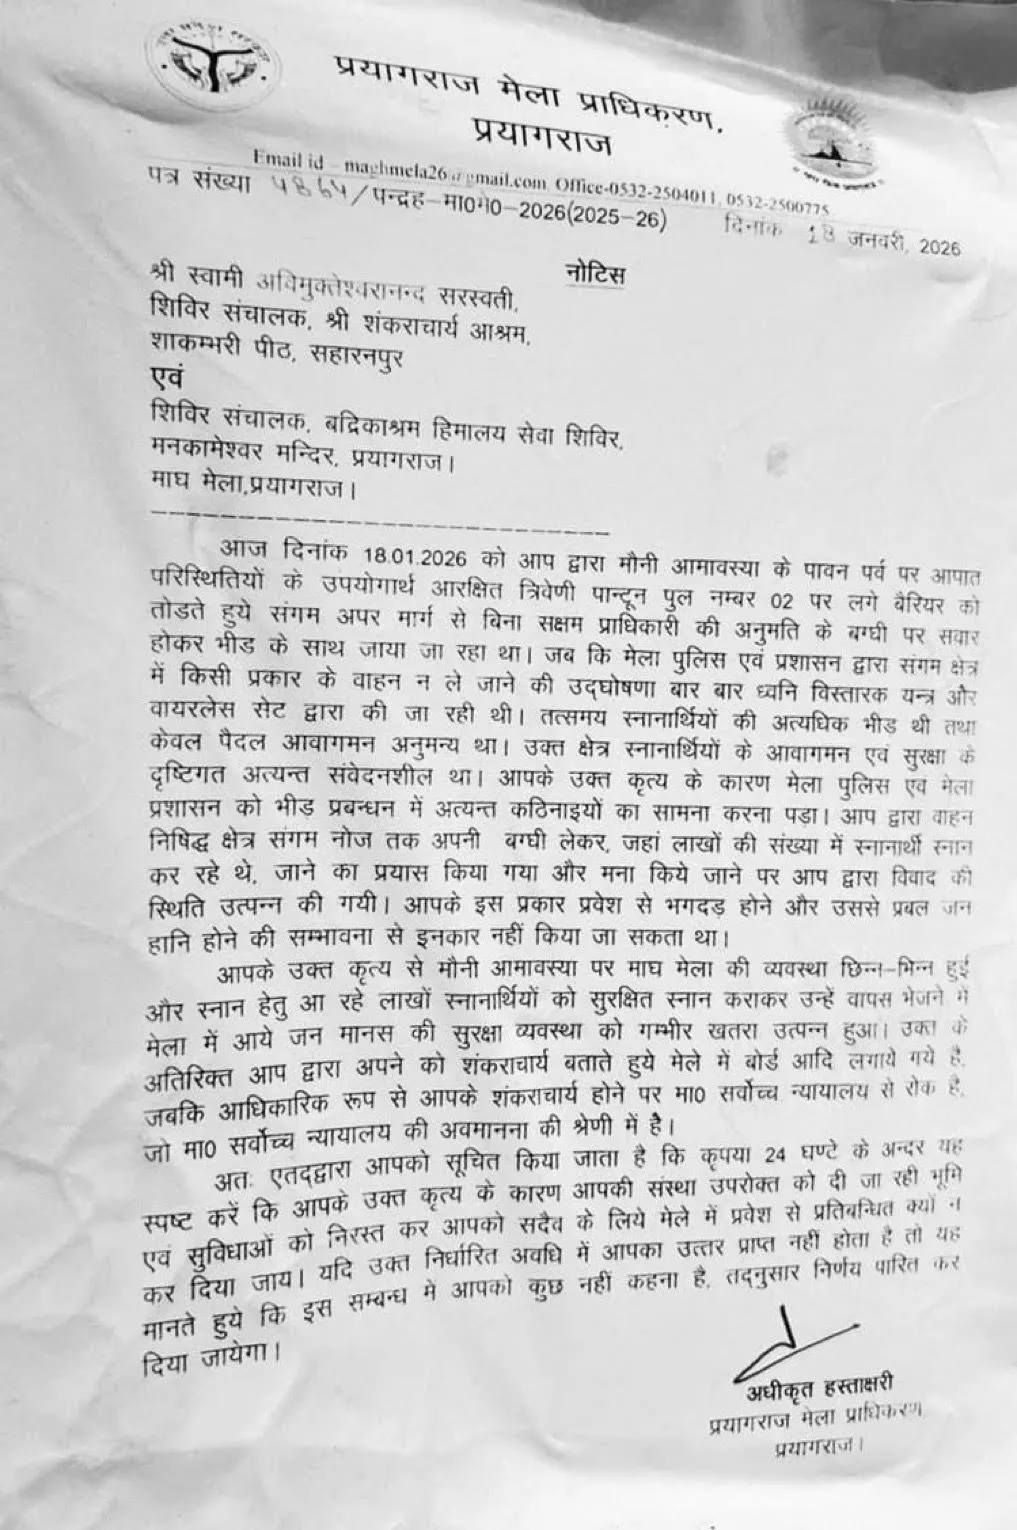 प्रयागराज मेला प्राधिकरण,
प्रयागराज
Email id - maghmela26@gmail.com Office-0532-2504011, 0532-2500775
पत्र संख्या 4864/पन्द्रह-मा0मे0-2026(2025-26) दिनांक 18 जनवरी, 2026
नोटिस
श्री स्वामी अविमुक्तेश्वरानन्द सरस्वती,
शिविर संचालक, श्री शंकराचार्य आश्रम,
शाकम्भरी पीठ, सहारनपुर
एवं
शिविर संचालक, बद्रिकाश्रम हिमालय सेवा शिविर,
मनकामेश्वर मन्दिर, प्रयागराज।
माघ मेला,प्रयागराज।
आज दिनांक 18.01.2026 को आप द्वारा मौनी आमावस्या के पावन पर्व पर आपात
परिस्थितियों के उपयोगार्थ आरक्षित त्रिवेणी पान्टून पुल नम्बर 02 पर लगे बैरियर को
तोडते हुये संगम अपर मार्ग से बिना सक्षम प्राधिकारी की अनुमति के बग्घी पर सवार
होकर भीड के साथ जाया जा रहा था। जब कि मेला पुलिस एवं प्रशासन द्वारा संगम क्षेत्र
में किसी प्रकार के वाहन न ले जाने की उद्घोषणा बार बार ध्वनि विस्तारक यन्त्र और
वायरलेस सेट द्वारा की जा रही थी। तत्समय स्नानार्थियों की अत्यधिक भीड़ थी तथा
केवल पैदल आवागमन अनुमन्य था। उक्त क्षेत्र स्नानार्थियों के आवागमन एवं सुरक्षा के
दृष्टिगत अत्यन्त संवेदनशील था। आपके उक्त कृत्य के कारण मेला पुलिस एवं मेला
प्रशासन को भीड़ प्रबन्धन में अत्यन्त कठिनाइयों का सामना करना पड़ा। आप द्वारा वाहन
निषिद्ध क्षेत्र संगम नोज तक अपनी बग्घी लेकर, जहां लाखों की संख्या में स्नानार्थी स्नान
कर रहे थे, जाने का प्रयास किया गया और मना किये जाने पर आप द्वारा विवाद की
स्थिति उत्पन्न की गयी। आपके इस प्रकार प्रवेश से भगदड़ होने और उससे प्रबल जन
हानि होने की सम्भावना से इनकार नहीं किया जा सकता था।
आपके उक्त कृत्य से मौनी आमावस्या पर माघ मेला की व्यवस्था छिन्न-भिन्न हुई
और स्नान हेतु आ रहे लाखों स्नानार्थियों को सुरक्षित स्नान कराकर उन्हें वापस भेजने में
मेला में आये जन मानस की सुरक्षा व्यवस्था को गम्भीर खतरा उत्पन्न हुआ। उक्त के
अतिरिक्त आप द्वारा अपने को शंकराचार्य बताते हुये मेले में बोर्ड आदि लगाये गये है,
जबकि आधिकारिक रूप से आपके शंकराचार्य होने पर मा0 सर्वोच्च न्यायालय से रोक है,
जो मा0 सर्वोच्च न्यायालय की अवमानना की श्रेणी में है।
अतः एतद्द्वारा आपको सूचित किया जाता है कि कृपया 24 घण्टे के अन्दर यह
स्पष्ट करें कि आपके उक्त कृत्य के कारण आपकी संस्था उपरोक्त को दी जा रही भूमि
एवं सुविधाओं को निरस्त कर आपको सदैव के लिये मेले में प्रवेश से प्रतिबन्धित क्यों न
कर दिया जाय। यदि उक्त निर्धारित अवधि में आपका उत्तर प्राप्त नहीं होता है तो यह
मानते हुये कि इस सम्बन्ध में आपको कुछ नहीं कहना है, तद्नुसार निर्णय पारित कर
दिया जायेगा।
अधीकृत हस्ताक्षरी
प्रयागराज मेला प्राधिकरण
प्रयागराज।